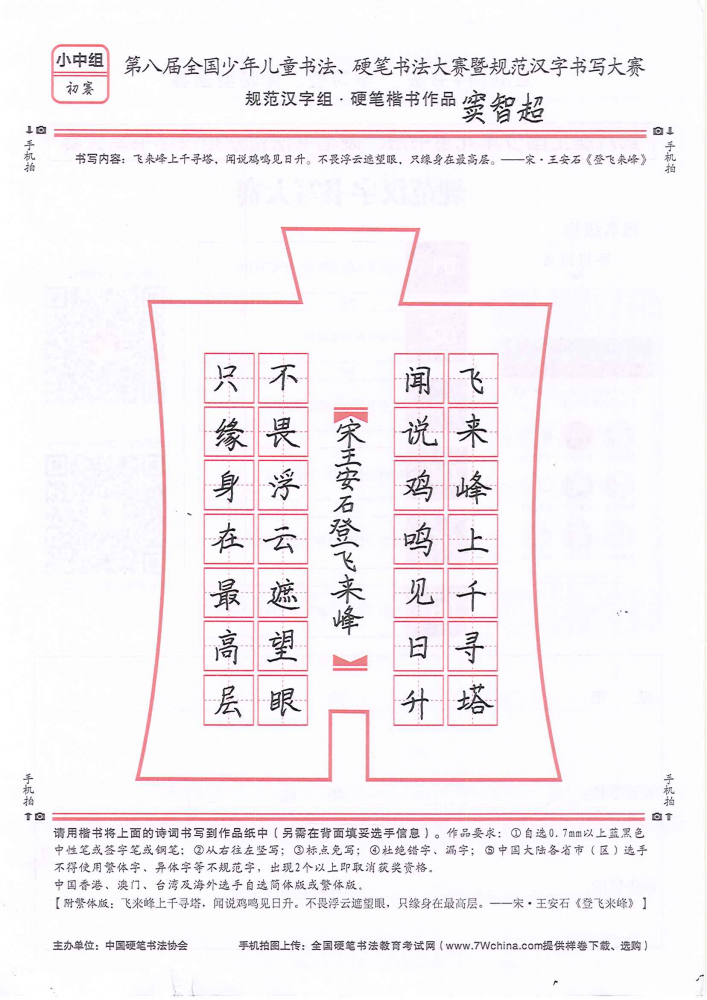 小中组
初赛
第八届全国少年儿童书法、硬笔书法大赛暨规范汉字书写大赛
规范汉字组·硬笔楷书作品 窦智超
手机拍
手机拍
书写内容：飞来峰上千寻塔，闻说鸡鸣见日升。不畏浮云遮望眼，只缘身在最高层。——宋·王安石《登飞来峰》
飞来峰上千寻塔
闻说鸡鸣见日升
宋王安石登飞来峰
不畏浮云遮望眼
只缘身在最高层
手机拍
手机拍
请用楷书将上面的诗词书写到作品纸中（另需在背面填妥选手信息）。作品要求：①自选0.7mm以上蓝黑色
中性笔或签字笔或钢笔；②从右往左竖写；③标点免写；④杜绝错字、漏字；⑤中国大陆各省市（区）选手
不得使用繁体字、异体字等不规范字，出现2个以上即取消获奖资格。
中国香港、澳门、台湾及海外选手自选简体版或繁体版。
【附繁体版：飞来峰上千寻塔，闻说鸡鸣见日升。不畏浮云遮望眼，只缘身在最高层。——宋·王安石《登飞来峰》】
主办单位：中国硬笔书法协会 手机拍图上传：全国硬笔书法教育考试网（www.7Wchina.com提供样卷下载、选购）